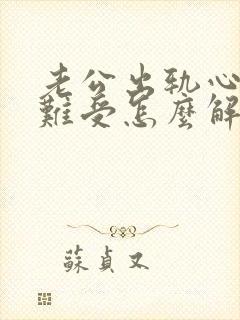 老公出轨心
難受怎麼解
蘇貞又